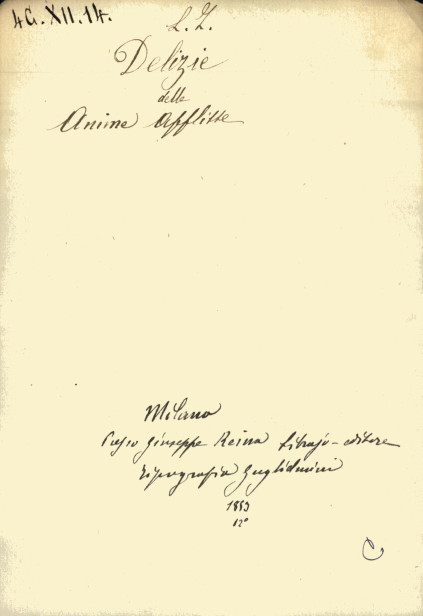 4G.XII.14.
L. Z.
Delizie
delle
Anime Afflitte
Milano
Presso Giuseppe Reina Librajo-editore
Tipografia Guglielmini
1853
12°
C